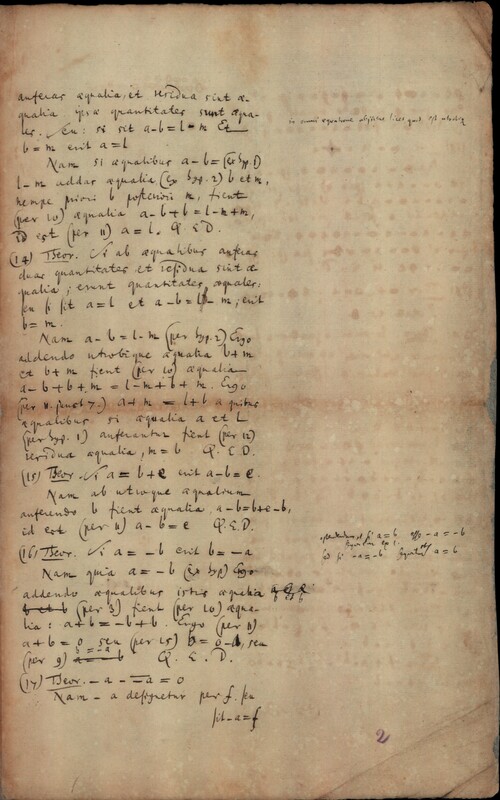 auferas æqualia, et residua sint æ-
qualia ipsæ quantitates sunt æqua-
les. seu: si sit a-b=l-m Et
b=m erit a=l
Nam si æqualibus a-b=(ex hyp. 1)
l-m addas æqualia (ex hyp. 2) b et m,
nempe priori b posteriori m, fient
(per 10) æqualia a-b+b=l-m+m,
id est (per 11) a=l. Q. E. D.
(14) Theor. Si ab æqualibus auferas
duas quantitates et residua sint æ-
qualia; erunt quantitates æquales.
seu si sit a=l et a-b=l-m; erit
b=m.
Nam a-b=l-m (per hyp. 2) Ergo
addendo utrobique æqualia b+m
et b+m fient (per 10) æqualia
a-b+b+m = l-m+b+m. Ergo
(per 11. 7.) a+m = l+b a quibus
æqualibus si æqualia a et l
(per hyp. 1) auferantur fient (per 12)
residua æqualia, m=b Q. E. D.
(15) Theor. Si a = b+c erit a-b=c.
Nam ab utroque æqualium
auferendo b fient æqualia, a-b=b+c-b,
id est (per 11) a-b=c Q.E.D.
(16) Theor. Si a = -b erit b=-a
Nam quia a=-b (ex hyp) Ergo
addendo æqualibus istis æqualia
b et b (per 3) fient (per 10) æqua-
lia: a+b=-b+b. Ergo (per 11)
a+b=0 seu (per 15) b=0-a, seu
(per 9) b=-a Q. E. D.
(17) Theor. -a - -a = 0
Nam -a designetur per f. seu
sit -a=f
in omni æquatione
si a=b, -a=-b
si -a=-b a=b
2